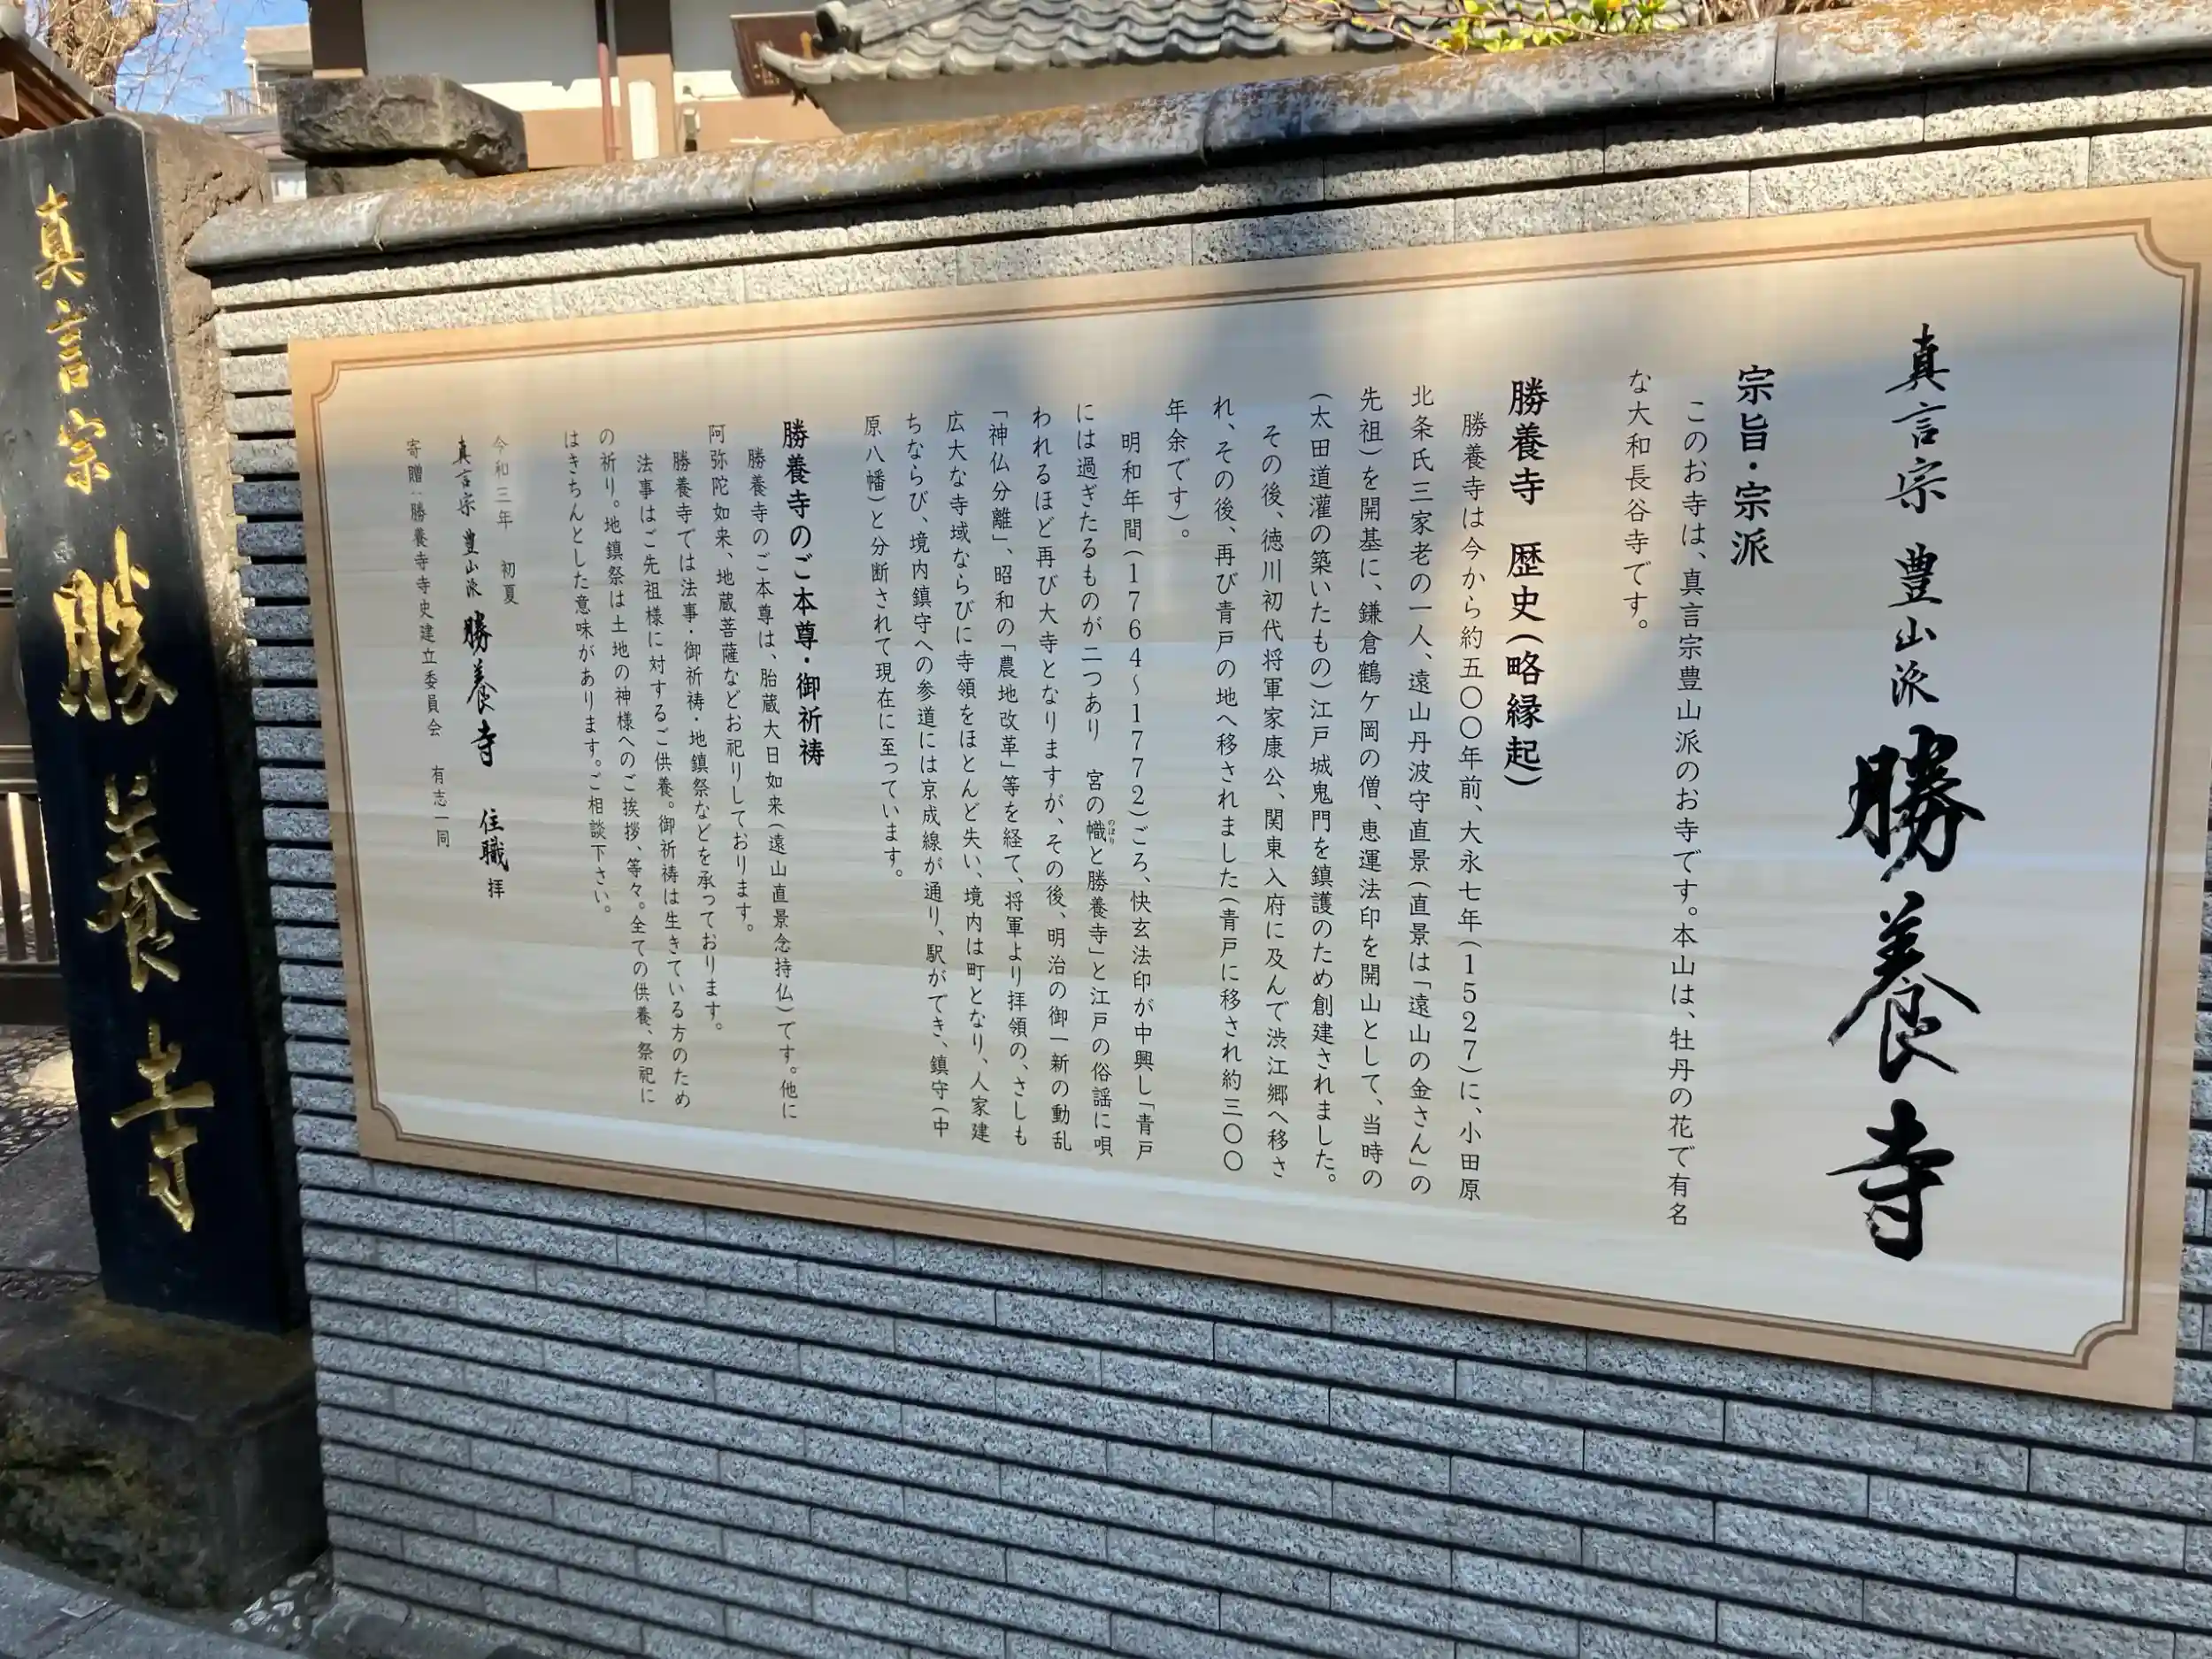 真言宗 豊山派 勝養寺
宗旨・宗派
このお寺は、真言宗豊山派のお寺です。本山は、牡丹の花で有名
な大和長谷寺です。
勝養寺 歴史(略縁起)
勝養寺は今から約五〇〇年前、大永七年(1527)に、小田原
北条氏三家老の一人、遠山丹波守直景(直景は「遠山の金さん」の
先祖)を開基に、鎌倉鶴ケ岡の僧、恵運法印を開山として、当時の
(太田道灌の築いたもの)江戸城鬼門を鎮護のため創建されました。
その後、徳川初代将軍家康公、関東入府に及んで渋江郷へ移さ
れ、その後、再び青戸の地へ移されました(青戸に移され約三〇〇
年余です)。
明和年間(1764~1772)ごろ、快玄法印が中興し「青戸
には過ぎたるものが二つあり 宮の幟のぼりと勝養寺」と江戸の俗謡に唄
われるほど再び大寺となりますが、その後、明治の御一新の動乱
「神仏分離」、昭和の「農地改革」等を経て、将軍より拝領の、さしも
広大な寺域ならびに寺領をほとんど失い、境内は町となり、人家建
ちならび、境内鎮守への参道には京成線が通り、駅ができ、鎮守(中
原八幡)と分断されて現在に至っています。
勝養寺のご本尊・御祈祷
勝養寺のご本尊は、胎蔵大日如来(遠山直景念持仏)です。他に
阿弥陀如来、地蔵菩薩などお祀りしております。
勝養寺では法事・御祈祷・地鎮祭などを承っております。
法事はご先祖様に対するご供養。御祈祷は生きている方のため
の祈り。地鎮祭は土地の神様へのご挨拶、等々。全ての供養、祭祀に
はきちんとした意味があります。ご相談下さい。
令和三年 初夏
真言宗 豊山派 勝養寺 住職 拝
寄贈:勝養寺寺史建立委員会 有志一同
真言宗 勝養寺